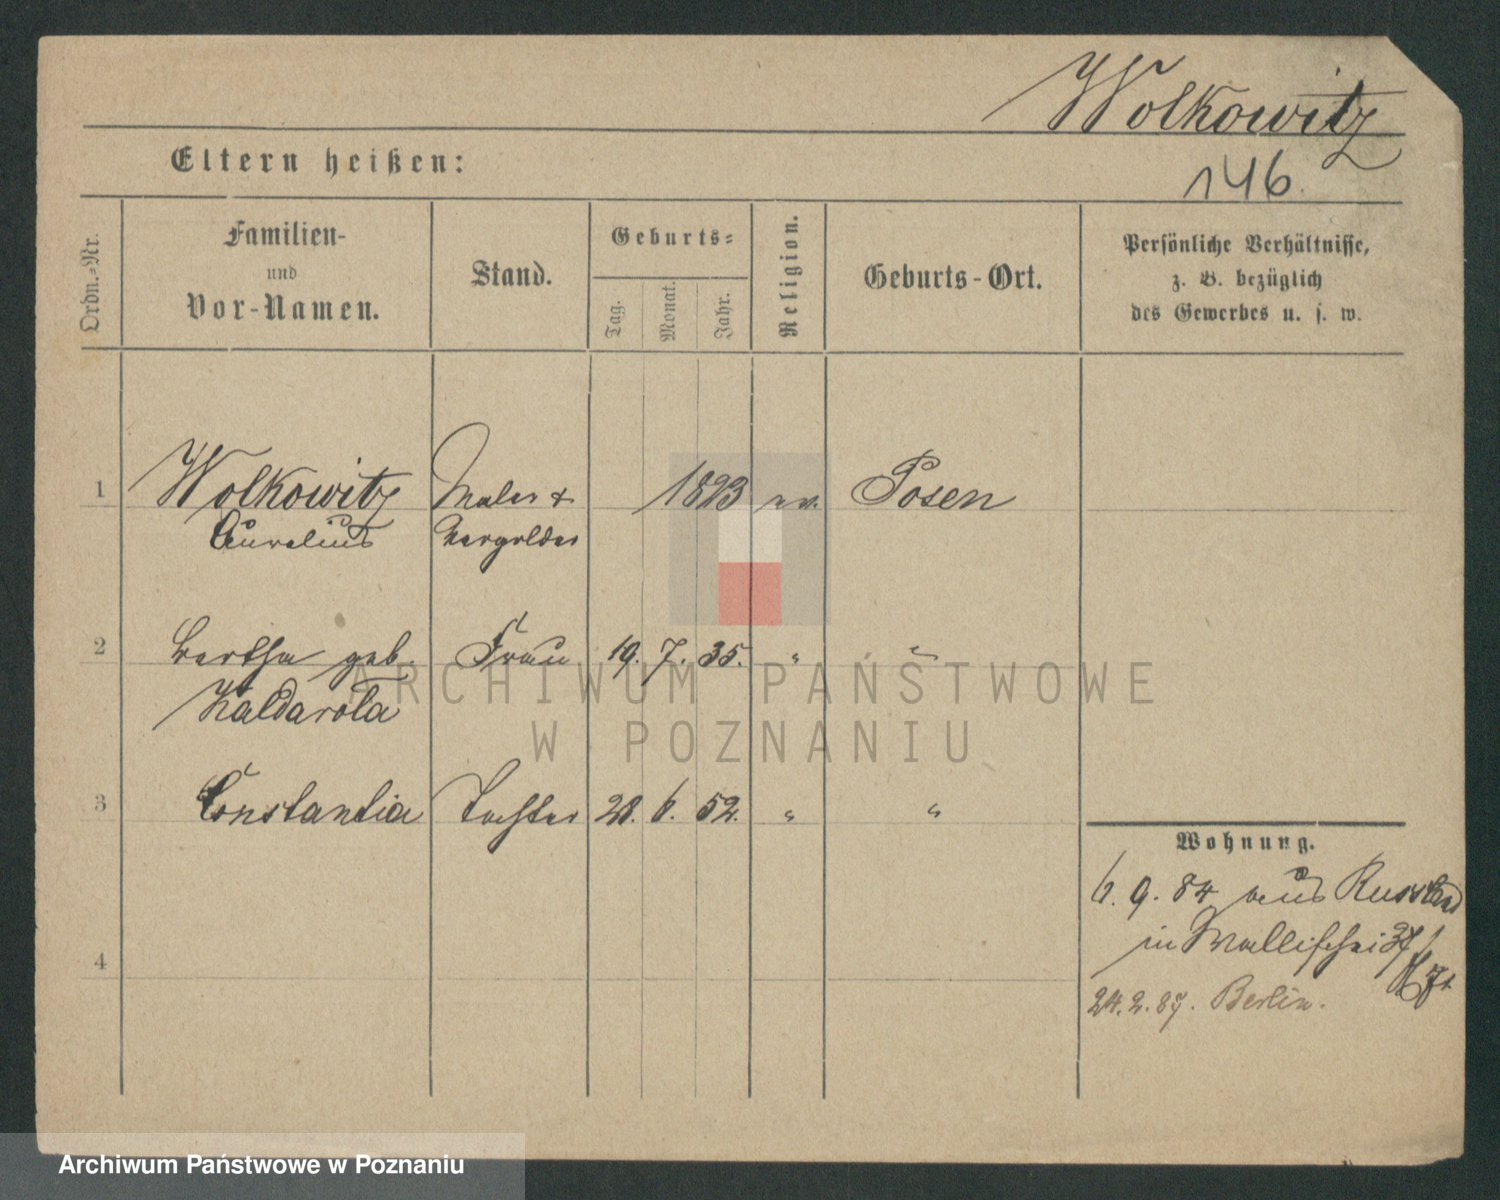 Wolkowitz
146.
Eltern heißen:
Ordn.-Nr.
Familien-
und
Vor-Namen.
Stand.
Geburts-
Tag.
Monat.
Jahr.
Religion.
Geburts-Ort.
Persönliche Verhältnisse,
z. B. bezüglich
des Gewerbes u. s. w.
1 Wolkowitz Maler + 1823 ev. Posen
Aurelius Vergolder
2 Bertha geb. Frau 19. 7. 35. " "
Kaldarola
3 Constantia Tochter 28. 6. 52. " "
4
Wohnung.
6. 9. 84 aus Russland
in Wallischei
24. 2. 87. Berlin.
ARCHIWUM PAŃSTWOWE
W POZNANIU
Archiwum Państwowe w Poznaniu